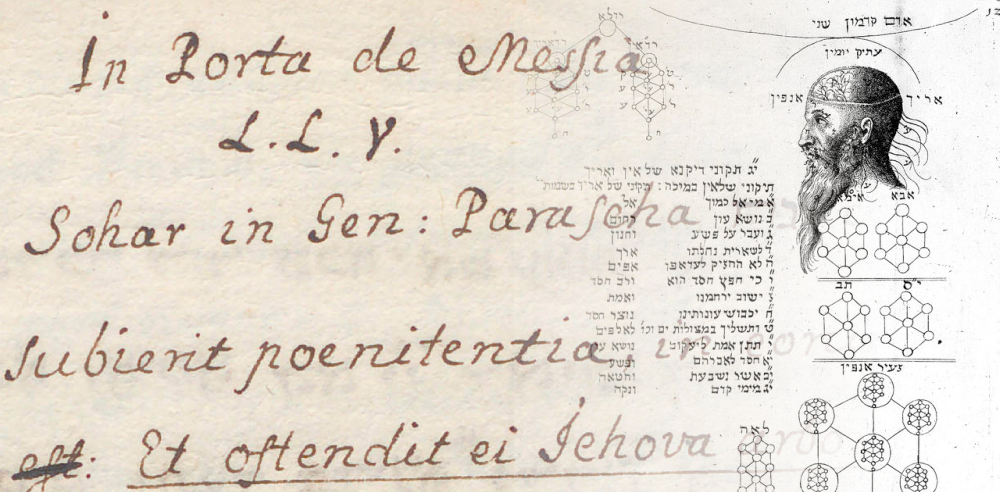 In Porta de Meſsia
L. L. V.
Sohar in Gen: Paraſcha
subierit poenitentia, in
eſt: Et oſtendit ei Jehova
אדם קדמון שני
עתיק יומין
אריך אנפין
אבא אימא
י"ס תב
זעיר אנפין
י"ג תקוני דיקנא של א"ן ואריך
תיקוני שלא"ן במיכה: תקוני של אריך בשמות
א מי אל כמוך אל
ב נושא עון רחום
ג ועבר על פשע וחנון
ד לשארית נחלתו ארך
ה לא החזיק לעד אפו אפים
ו כי חפץ חסד הוא ורב חסד
ז ישוב ירחמנו ואמת
ח יכבוש עונותינו נוצר חסד
ט ותשליך במצולות ים וכו' לאלפים
י תתן אמת ליעקב נושא עון
יא חסד לאברהם ופשע
יב אשר נשבעת וחטאה
יג מימי קדם ונקה
לאה